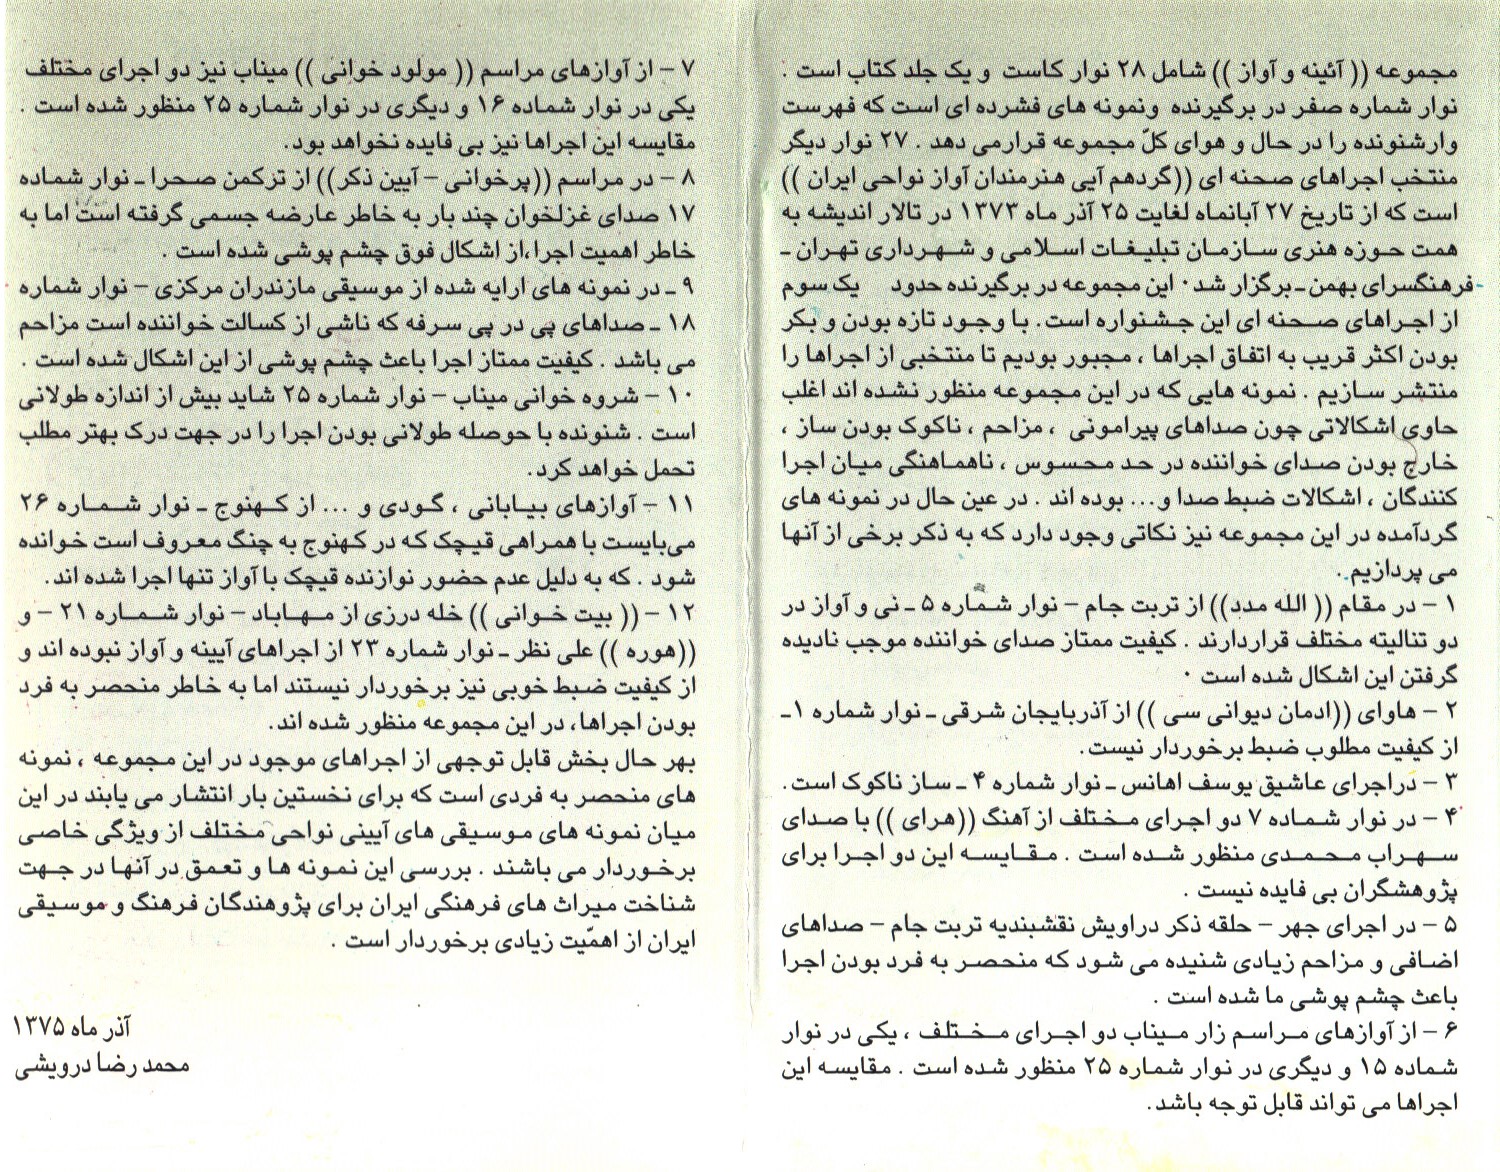 مجموعه (( آئینه و آواز )) شامل ۲۸ نوار کاست و یک جلد کتاب است .
نوار شماره صفر در برگیرنده ونمونه های فشرده ای است که فهرست
وارشنونده را در حال و هوای کلّ مجموعه قرارمی دهد . ۲۷ نوار دیگر
منتخب اجراهای صحنه ای ((گردهم آیی هنرمندان آواز نواحی ایران ))
است که از تاریخ ۲۷ آبانماه لغایت ۲۵ آذر ماه ۱۳۷۳ در تالار اندیشه به
همت حوزه هنری سازمان تبلیغات اسلامی و شهرداری تهران ـ
فرهنگسرای بهمن ـ برگزار شد · این مجموعه در برگیرنده حدود یک سوم
از اجراهای صحنه ای این جشنواره است . با وجود تازه بودن و بکر
بودن اکثر قریب به اتفاق اجراها ، مجبور بودیم تا منتخبی از اجراها را
منتشر سازیم . نمونه هایی که در این مجموعه منظور نشده اند اغلب
حاوی اشکالاتی چون صداهای پیرامونی ، مزاحم ، ناکوک بودن ساز ،
خارج بودن صدای خواننده در حد محسوس ، ناهماهنگی میان اجرا
کنندگان ، اشکالات ضبط صدا و... بوده اند . در عین حال در نمونه های
گردآمده در این مجموعه نیز نکاتی وجود دارد که به ذکر برخی از آنها
می پردازیم .
۱ – در مقام (( الله مدد)) از تربت جام – نوار شماره ۵ ـ نی و آواز در
دو تنالیته مختلف قراردارند . کیفیت ممتاز صدای خواننده موجب نادیده
گرفتن این اشکال شده است ·
۲ – هاوای ((ادمان دیوانی سی )) از آذربایجان شرقی ـ نوار شماره ۱ ـ
از کیفیت مطلوب ضبط برخوردار نیست.
۳ – دراجرای عاشیق یوسف اهانس ـ نوار شماره ۴ ـ ساز ناکوک است.
۴ – در نوار شماده ۷ دو اجرای مختلف از آهنگ ((هرای )) با صدای
سهراب محمدی منظور شده است . مقایسه این دو اجرا برای
پژوهشگران بی فایده نیست .
۵ – در اجرای جهر – حلقه ذکر دراویش نقشبندیه تربت جام – صداهای
اضافی و مزاحم زیادی شنیده می شود که منحصر به فرد بودن اجرا
باعث چشم پوشی ما شده است .
۶ – از آوازهای مراسم زار میناب دو اجرای مختلف ، یکی در نوار
شماده ۱۵ و دیگری در نوار شماره ۲۵ منظور شده است . مقایسه این
اجراها می تواند قابل توجه باشد.
۷ – از آوازهای مراسم (( مولود خوانی )) میناب نیز دو اجرای مختلف
یکی در نوار شماده ۱۶ و دیگری در نوار شماره ۲۵ منظور شده است .
مقایسه این اجراها نیز بی فایده نخواهد بود.
۸ – در مراسم ((پرخوانی – آیین ذکر)) از ترکمن صحرا ـ نوار شماده
۱۷ صدای غزلخوان چند بار به خاطر عارضه جسمی گرفته است اما به
خاطر اهمیت اجرا،از اشکال فوق چشم پوشی شده است .
۹ ـ در نمونه های ارایه شده از موسیقی مازندران مرکزی – نوار شماره
۱۸ ـ صداهای پی در پی سرفه که ناشی از کسالت خواننده است مزاحم
می باشد . کیفیت ممتاز اجرا باعث چشم پوشی از این اشکال شده است .
۱۰ – شروه خوانی میناب – نوار شماره ۲۵ شاید بیش از اندازه طولانی
است . شنونده با حوصله طولانی بودن اجرا را در جهت درک بهتر مطلب
تحمل خواهد کرد.
۱۱ – آوازهای بیابانی ، گودی و ... از کهنوج ـ نوار شماره ۲۶
می‌بایست با همراهی قیچک که در کهنوج به چنگ معروف است خوانده
شود . که به دلیل عدم حضور نوازنده قیچک با آواز تنها اجرا شده اند.
۱۲ – (( بیت خوانی )) خله درزی از مهاباد – نوار شماره ۲۱ – و
((هوره )) علی نظر ـ نوار شماره ۲۳ از اجراهای آیینه و آواز نبوده اند و
از کیفیت ضبط خوبی نیز برخوردار نیستند اما به خاطر منحصر به فرد
بودن اجراها، در این مجموعه منظور شده اند.
بهر حال بخش قابل توجهی از اجراهای موجود در این مجموعه ، نمونه
های منحصر به فردی است که برای نخستین بار انتشار می یابند در این
میان نمونه های موسیقی های آیینی نواحی مختلف از ویژگی خاصی
برخوردار می باشند . بررسی این نمونه ها و تعمق در آنها در جهت
شناخت میراث های فرهنگی ایران برای پژوهندگان فرهنگ و موسیقی
ایران از اهمّیت زیادی برخوردار است .
آذر ماه ۱۳۷۵
محمد رضا درویشی